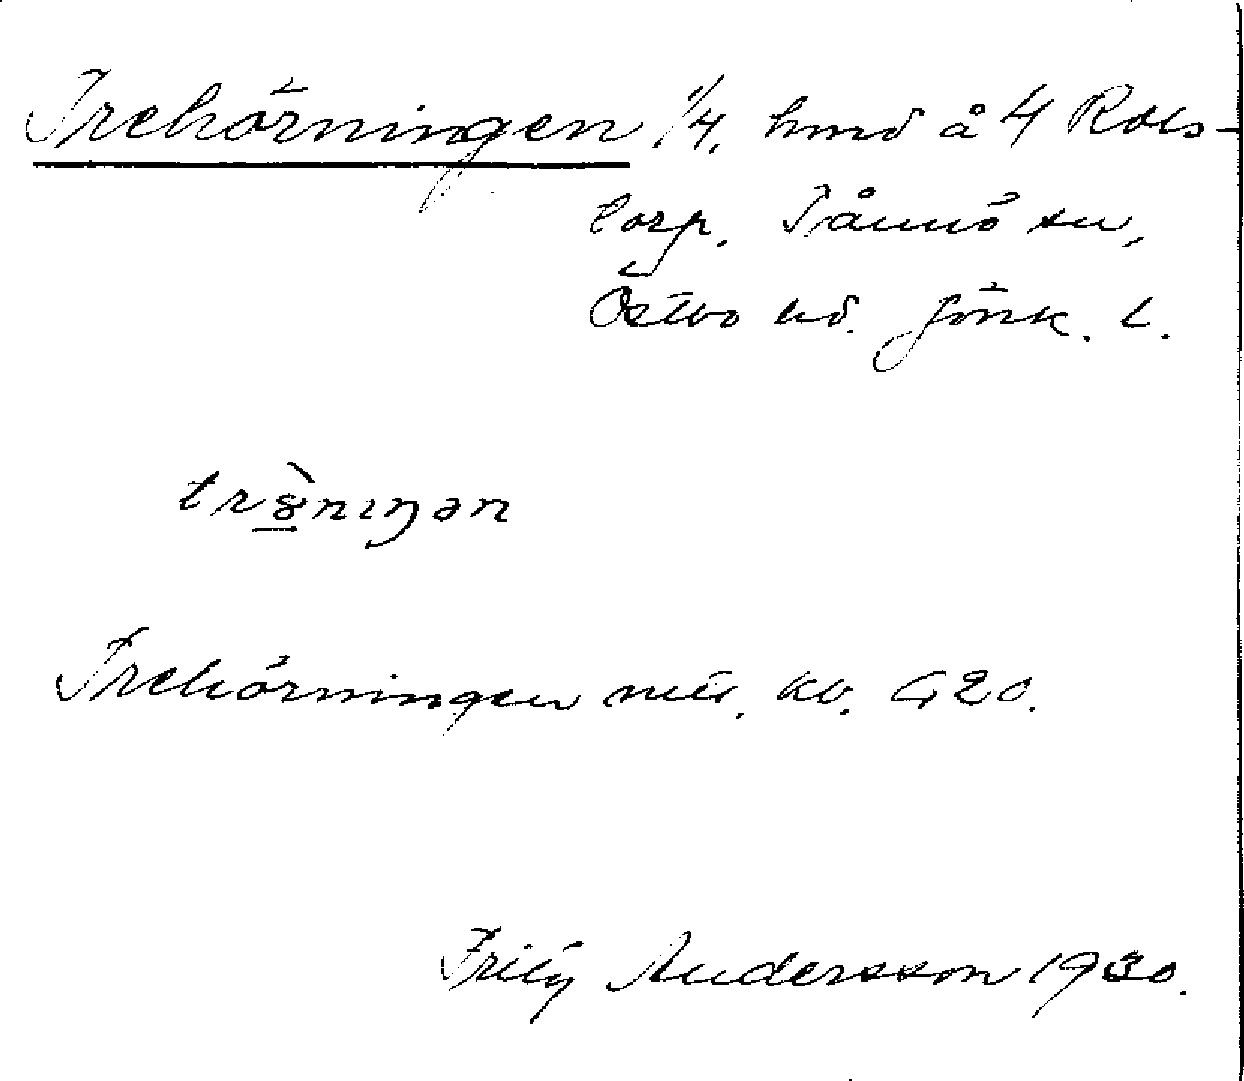 Trehörningen 1/4. hmd å 4 Rols-
torp. Tånnö sn,
Östbo hd. Jönk. l.
trö̀nıŋən
Trehörningen mtr. kv. G20.
Frity Andersson 1930.